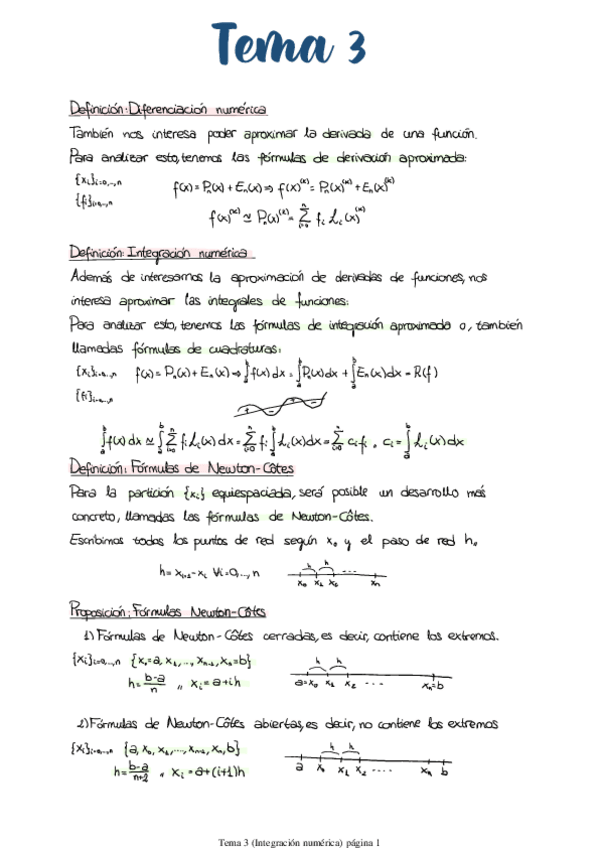 Tema 3
Definición: Diferenciación numérica
También nos interesa poder aproximar la derivada de una función.
Para analizar esto, tenemos las fórmulas de derivación aproximada:
{xᵢ}ᵢ₌₀,…,ₙ f(x) = Pₙ(x) + Eₙ(x) ⇒ f(x)⁽ᵏ⁾ = Pₙ(x)⁽ᵏ⁾ + Eₙ(x)⁽ᵏ⁾
{fᵢ}ᵢ₌₀,…,ₙ
f(x)⁽ᵏ⁾ ≃ Pₙ(x)⁽ᵏ⁾ = ∑ᵢ₌₀ⁿ fᵢ Lᵢ(x)⁽ᵏ⁾
Definición: Integración numérica
Además de interesarnos la aproximación de derivadas de funciones, nos
interesa aproximar las integrales de funciones:
Para analizar esto, tenemos las fórmulas de integración aproximada o, también
llamadas fórmulas de cuadraturas:
{xᵢ}ᵢ₌₀,…,ₙ f(x) = Pₙ(x) + Eₙ(x) ⇒ ∫ₐᵇ f(x) dx = ∫ₐᵇ Pₙ(x) dx + ∫ₐᵇ Eₙ(x) dx = R(f)
{fᵢ}ᵢ₌₀,…,ₙ
+ - + -
∫ₐᵇ f(x) dx ≃ ∫ₐᵇ ∑ᵢ₌₀ⁿ fᵢ Lᵢ(x) dx = ∑ᵢ₌₀ⁿ fᵢ ∫ₐᵇ Lᵢ(x) dx = ∑ᵢ₌₀ⁿ cᵢ fᵢ , cᵢ = ∫ₐᵇ Lᵢ(x) dx
Definición: Fórmulas de Newton-Côtes
Para la partición {xᵢ} equiespaciada, será posible un desarrollo más
concreto, llamadas las fórmulas de Newton-Côtes.
Escribimos todos los puntos de red según x₀ y el paso de red h.
h = xᵢ₊₁ - xᵢ ∀i = 0,…, n
h h ...
x₀ x₁ x₂ xₙ
Proposición: Fórmulas Newton-Côtes
1) Fórmulas de Newton-Côtes cerradas, es decir, contiene los extremos.
{xᵢ}ᵢ₌₀,…,ₙ {x₀=a, x₁, ..., xₙ₋₁, xₙ=b}
h = (b-a)/n ,, xᵢ = a + ih
h h
a=x₀ x₁ x₂ .... xₙ=b
2) Fórmulas de Newton-Côtes abiertas, es decir, no contiene los extremos
{xᵢ}ᵢ₌₀,…,ₙ {a, x₀, x₁, ..., xₙ₋₁, xₙ, b}
h = (b-a)/(n+2) ,, xᵢ = a + (i+1)h
h h
a x₀ x₁ x₂ .... xₙ b
Tema 3 (Integración numérica) página 1